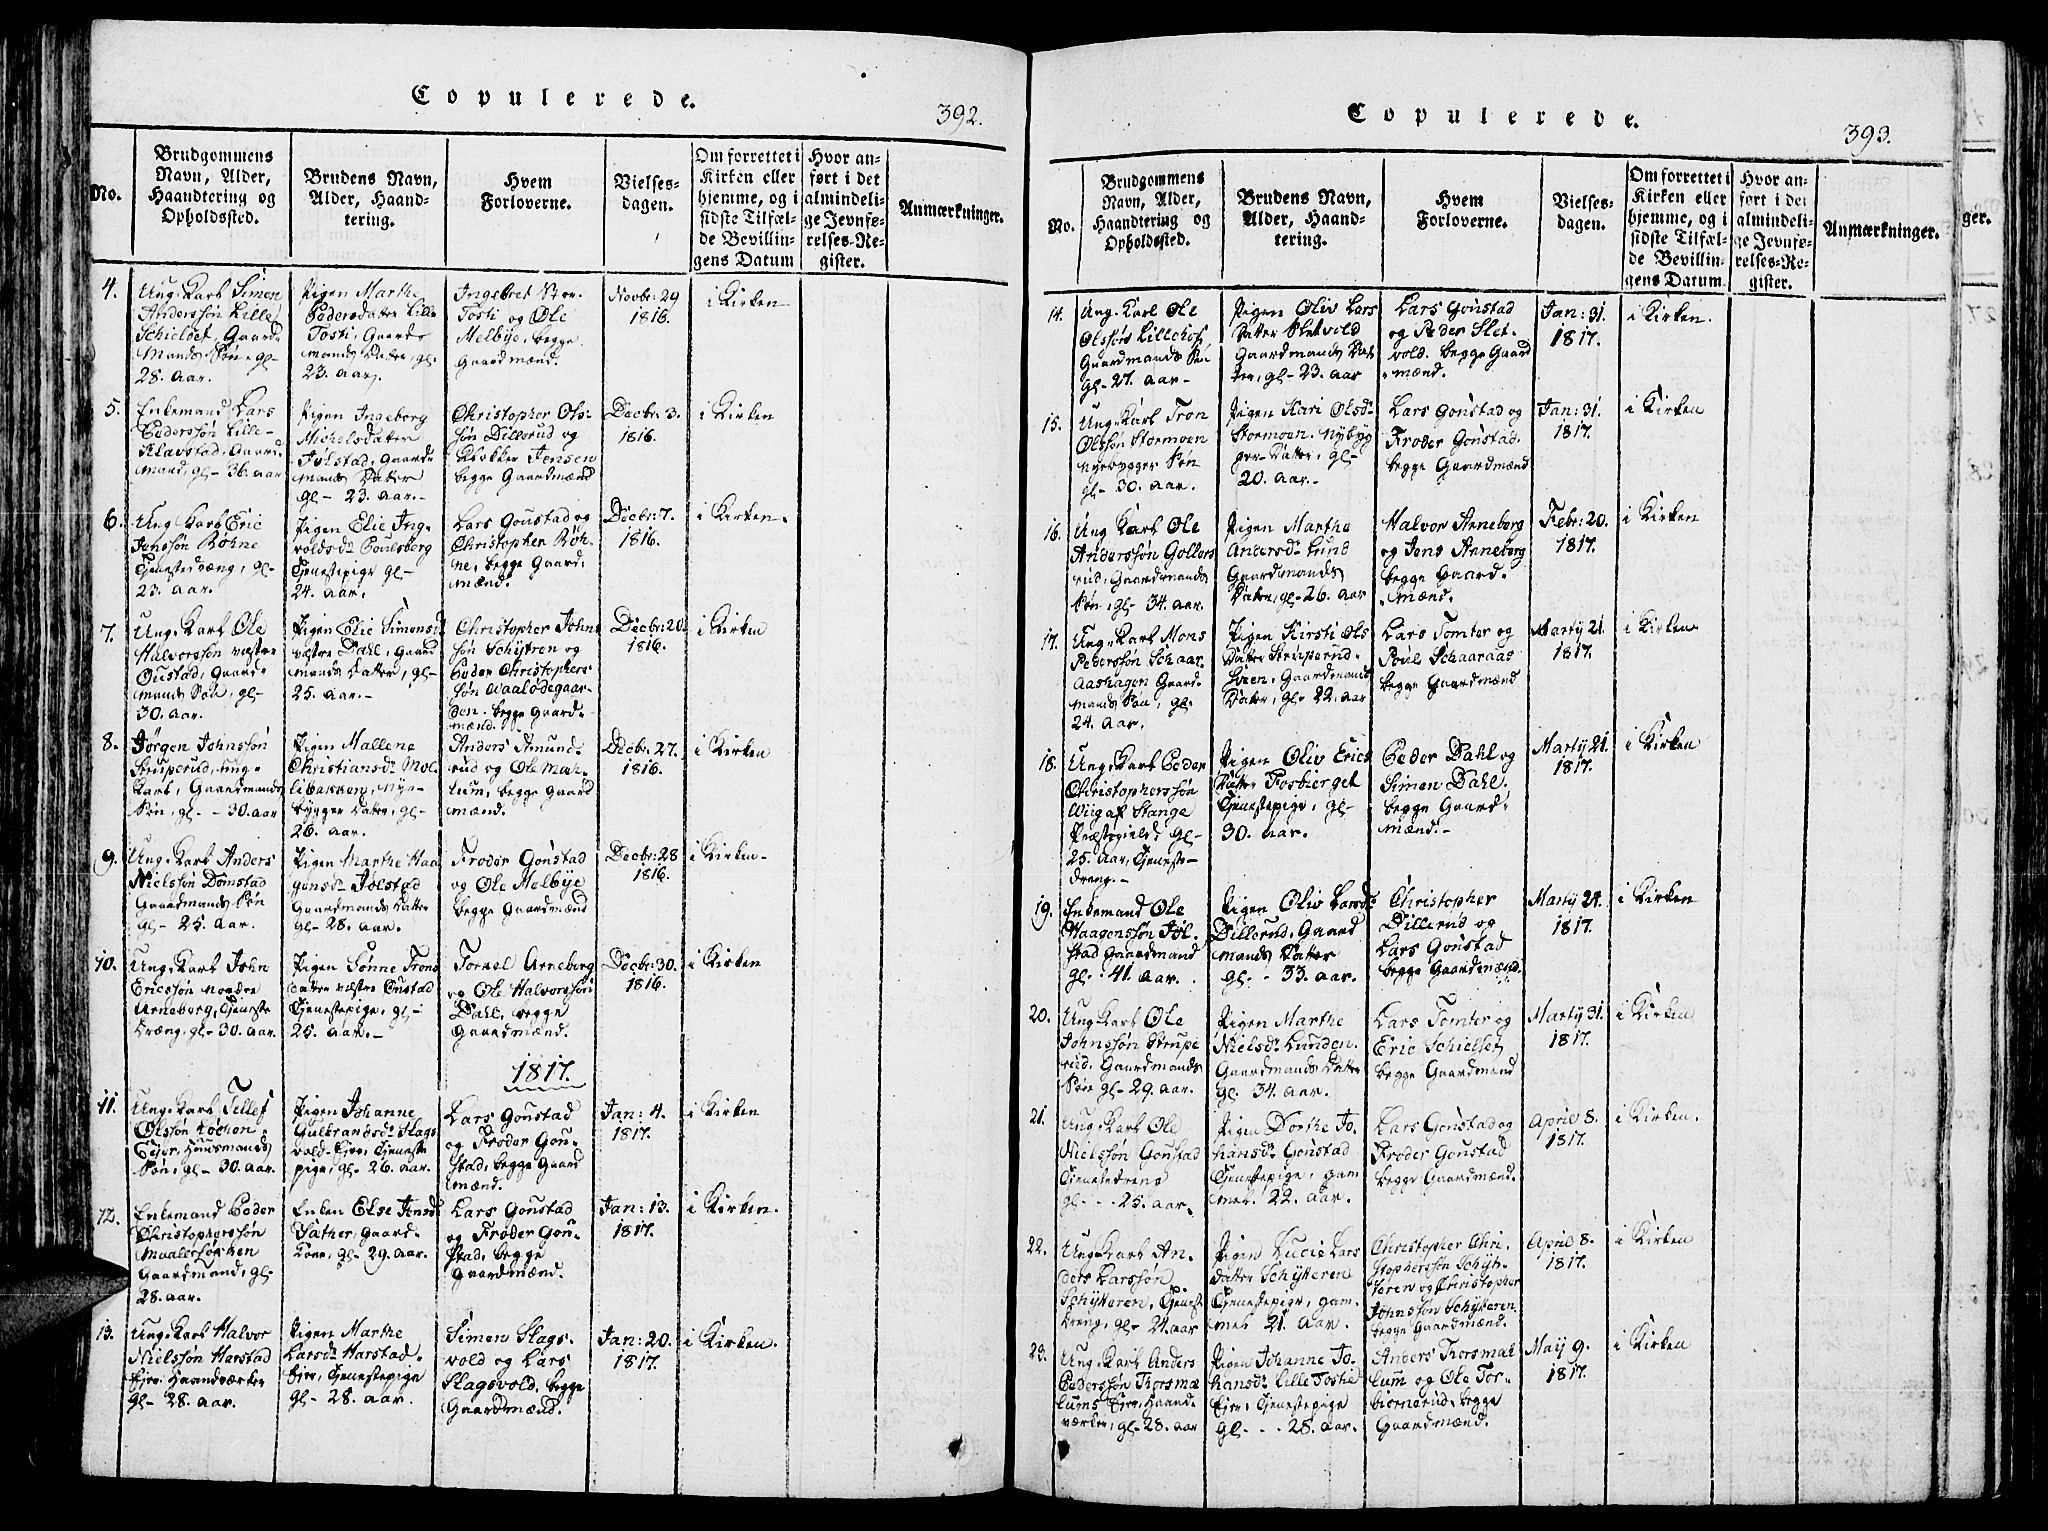 Copulerede.
392.
No.
Brudgommens
Navn, Alder,
Haandtering og
Opholdssted.
Brudens Navn,
Alder, Haand-
tering.
Hvem
Forloverne.
Vielses-
dagen.
Om forrettet i
Kirken eller
hjemme, og i
sidste Tilfæl-
de Bevillin-
gens Datum
Hvor an-
ført i det
almindeli-
ge Jevnfø-
relses-Re-
gister.
Anmærkninger.
4.
Ung-Karl Simen
Anderssøn Lille
Schieldet, Gaard-
Mands Søn, gl-
28. Aar.
Pigen Marthe
Pedersdatter Lille
Tosti, Gaard-
mands Datter, gl-
23. Aar.
Ingebret Stor
Tosti og Ole
Melbye, begge
Gaardmænd.
Novbr: 29
1816.
i Kirken
5.
Enkemand Lars
Pederssøn Lille-
Klavstad, Gaard-
mand, gl- 36. Aar
Pigen Ingeborg
Michelsdatter
Jølstad, Gaard-
mands Datter
gl- 23. Aar.-
Christopher Ols-
søn Dillerud og
Klokker Jensen
begge Gaardmænd
Decbr: 3.
1816.
i Kirken
6.
Ung Karl Eric
Jenssøn Røhne
Tjenestedræng, gl-
23. Aar.
Pigen Elie Ing-
voldsdr Poulsberg
Tjenestepige gl-
24. Aar.
Lars Goustad og
Christopher Røh-
ne, begge Gaard-
mænd.
Decbr: 7.
1816.
i Kirken.
7.
Ung-Karl Ole
Halvorssøn vestre
Oustad, Gaard-
mands Søn, gl-
30. Aar.
Pigen Elie Simensd
vestre Dahl, Gaard
mands Datter, gl-
25. Aar.-
Christopher Johns
søn Schytren og
Peder Christophers
søn Waalødegaar-
den. begge Gaard-
mænd.
Decbr: 20.
1816.
i Kirken
8.
Jørgen Johnssøn
Struperud, ung-
Karl, Gaardmands
Søn, gl- - 30. Aar
Pigen Mallene
Christiansdr Mol-
libakken, Nye-
bygger Datter, gl-
26. Aar.
Anders Amund-
rud og Ole Mæh-
lum, begge Gaard
mænd.
Decbr: 27.
1816.
i Kirken
9.
Ung-Karl Anders
Nielssøn Domstad
Gaardmands Søn
gl- 25. Aar.
Pigen Marthe Haa
gensdr Jølstad
Gaardmands Datter
gl- 28. Aar.
Froder Goustad
og Ole Melbye
begge Gaardmænd
Decbr: 28
1816.
i Kirken-
10.
Ung-Karl John
Ericssøn nordre
Arneberg, Tjeneste
Dræng, gl- 30. Aar.
Pigen Sønne Trons
Datter vestre Oustad
Tjenestepige, gl-
25. Aar.-
Torkel Arneberg
og Ole Halvorssøn
Dahl, begge
Gaardmænd.
Decbr: 30.
1816.
i Kirken
1817.
11.
Ung-Karl Tellef
Olssøn
Ejer, Huusmands
Søn, gl- 30. Aar.
Pigen Johanne
Gulbrandsdr Slags
vold-Ejer, Tjeneste
pige, gl- 26. Aar.
Lars Goustad
og Froder Gou-
stad, begge Gaard
mænd.
Jan: 4.
1817.
i Kirken
12.
Enkemand Peder
Christopherssøn
Gaardmand, gl-
28. Aar.
Enken Else Jensd
Sæther, Gaard-
Kone, gl- 29. Aar.
Lars Goustad
og Froder Gou-
stad, begge
Gaardmænd.
Jan: 13.
1817.
i Kirken.
13.
Ung-Karl Halvor
Nielssøn Harstad
Ejer, Haandværker
gl- 28. Aar.
Pigen Marthe
Larsdr Harstad-
Ejer, Tjenestepige
gl- 28. Aar.
Simen Slags-
vold og Lars
Slagsvold, begge
Gaardmænd.
Jan: 20.
1817.
i Kirken.
Copulerede.
393.
No.
Brudgommens
Navn, Alder,
Haandtering og
Opholdssted.
Brudens Navn,
Alder, Haand-
tering.
Hvem
Forloverne.
Vielses-
dagen.
Om forrettet i
Kirken eller
hjemme, og i
sidste Tilfæl-
de Bevillin-
gens Datum
Hvor an-
ført i det
almindeli-
ge Jevnfø-
relses-Re-
gister.
Anmærkninger.
14.
Ung-Karl Ole
Olssøn Lillehof,
Gaardmands Søn
gl- 27. Aar-
Pigen Oliv Lars
Datter Sletvold
Gaardmands Dat
ter, gl- 23. Aar
Lars Goustad
og Peder Slet-
vold. begge Gaard
mænd.
Jan: 31.
1817.
i Kirken.
15.
Ung-Karl Tron
Olssøn Stormoen
Nyebygger Søn
gl- 30. Aar.
Pigen Kari Olsdr
Stormoen, Nybyg
ger-Datter, gl-
20. Aar.-
Lars Goustad og
Froder Goustad,
begge Gaardmænd
Jan: 31.
1817.
i Kirken
16.
Ung Karl Ole
Anderssøn Gollers
rud, Gaardmands
Søn, gl- 34. Aar.
Pigen Marthe
Andersdr Lund
Gaardmands
Datter, gl- 26. Aar
Halvor Arneberg
og Jens Arneberg
begge Gaard-
mænd.
Febr: 20.
1817.
i Kirken
17.
Ung-Karl Mons
Pederssøn Schaar
Aashagen Gaard-
mands Søn, gl-
24. Aar.
Pigen Kirsti Ols
Datter Struperud-
Eien, Gaardmands
Datter, gl- 22. Aar
Lars Tomter og
Poul Schaaraas
begge Gaardmænd
Martÿ 21.
1817.
i Kirken
18.
Ung-Karl Peder
Christopherssøn
Wiig af Stange
Præstegield, gl-
25. Aar, Tjeneste-
dreng.-
Pigen Oliv Erics
Datter Fosberget
Tjenestepige, gl-
30. Aar.
Peder Dahl og
Simen Dahl,
begge Gaard-
mænd.-
Martÿ 21.
1817.
i Kirken
19.
Enkemand Ole
Haagenssøn Jøl-
stad Gaardmand
gl- . 41. Aar.
Pigen Oliv Larsdr
Dillerud, Gaard
mands Datter
gl- - 33. Aar.
Christopher
Dillerud og
Lars Goustad
begge Gaardmænd.
Martÿ 24.
1817.
i Kirken
20.
Ung Karl Ole
Johnssøn Strupe
rud, Gaardmands
Søn gl- 29. Aar.
Pigen Marthe
Nielsdr Lunden.
Gaardmands Datter
gl. 34. Aar.
Lars Tomter og
Eric Schielset
begge Gaardmænd
Martÿ 31.
1817.
i Kirken
21.
Ung-Karl Ole
Nielssøn Goustad
Tjenestedreng
gl- - - 25. Aar.
Pigen Dorthe Jo-
hansdr Goustad
Tjenestepige, gam
mel 22. Aar.
Lars Goustad og
Froder Goustad
begge Gaardmænd.
April 8.
1817.
i Kirken.
22.
Ung-Karl An-
ders Larssøn
Schytteren, Tjenest
Dreng, gl- 24. Aar
Pigen Lucie Lars
Datter Schytteren
Tjenestepige, gam-
mel 21. Aar.
Christopher Chri-
stopherssøn Schyt-
teren og Christopher
Johnssøn Schytteren
begge Gaardmænd.
April 8.
1817.
i Kirken
23.
Ung-Karl Anders
Pederssøn Thorsmæ
lums Ejer, Haand-
værker, gl- 28. Aar
Pigen Johanne Jo-
hansdr Lille Toslie
Ejer, Tjenestepige
gl- . . . 28. Aar.
Anders Thorsmæl
lum og Ole Tor-
biørnerud, begge
Gaardmænd.
Maÿ 9.
1817.
i Kirken